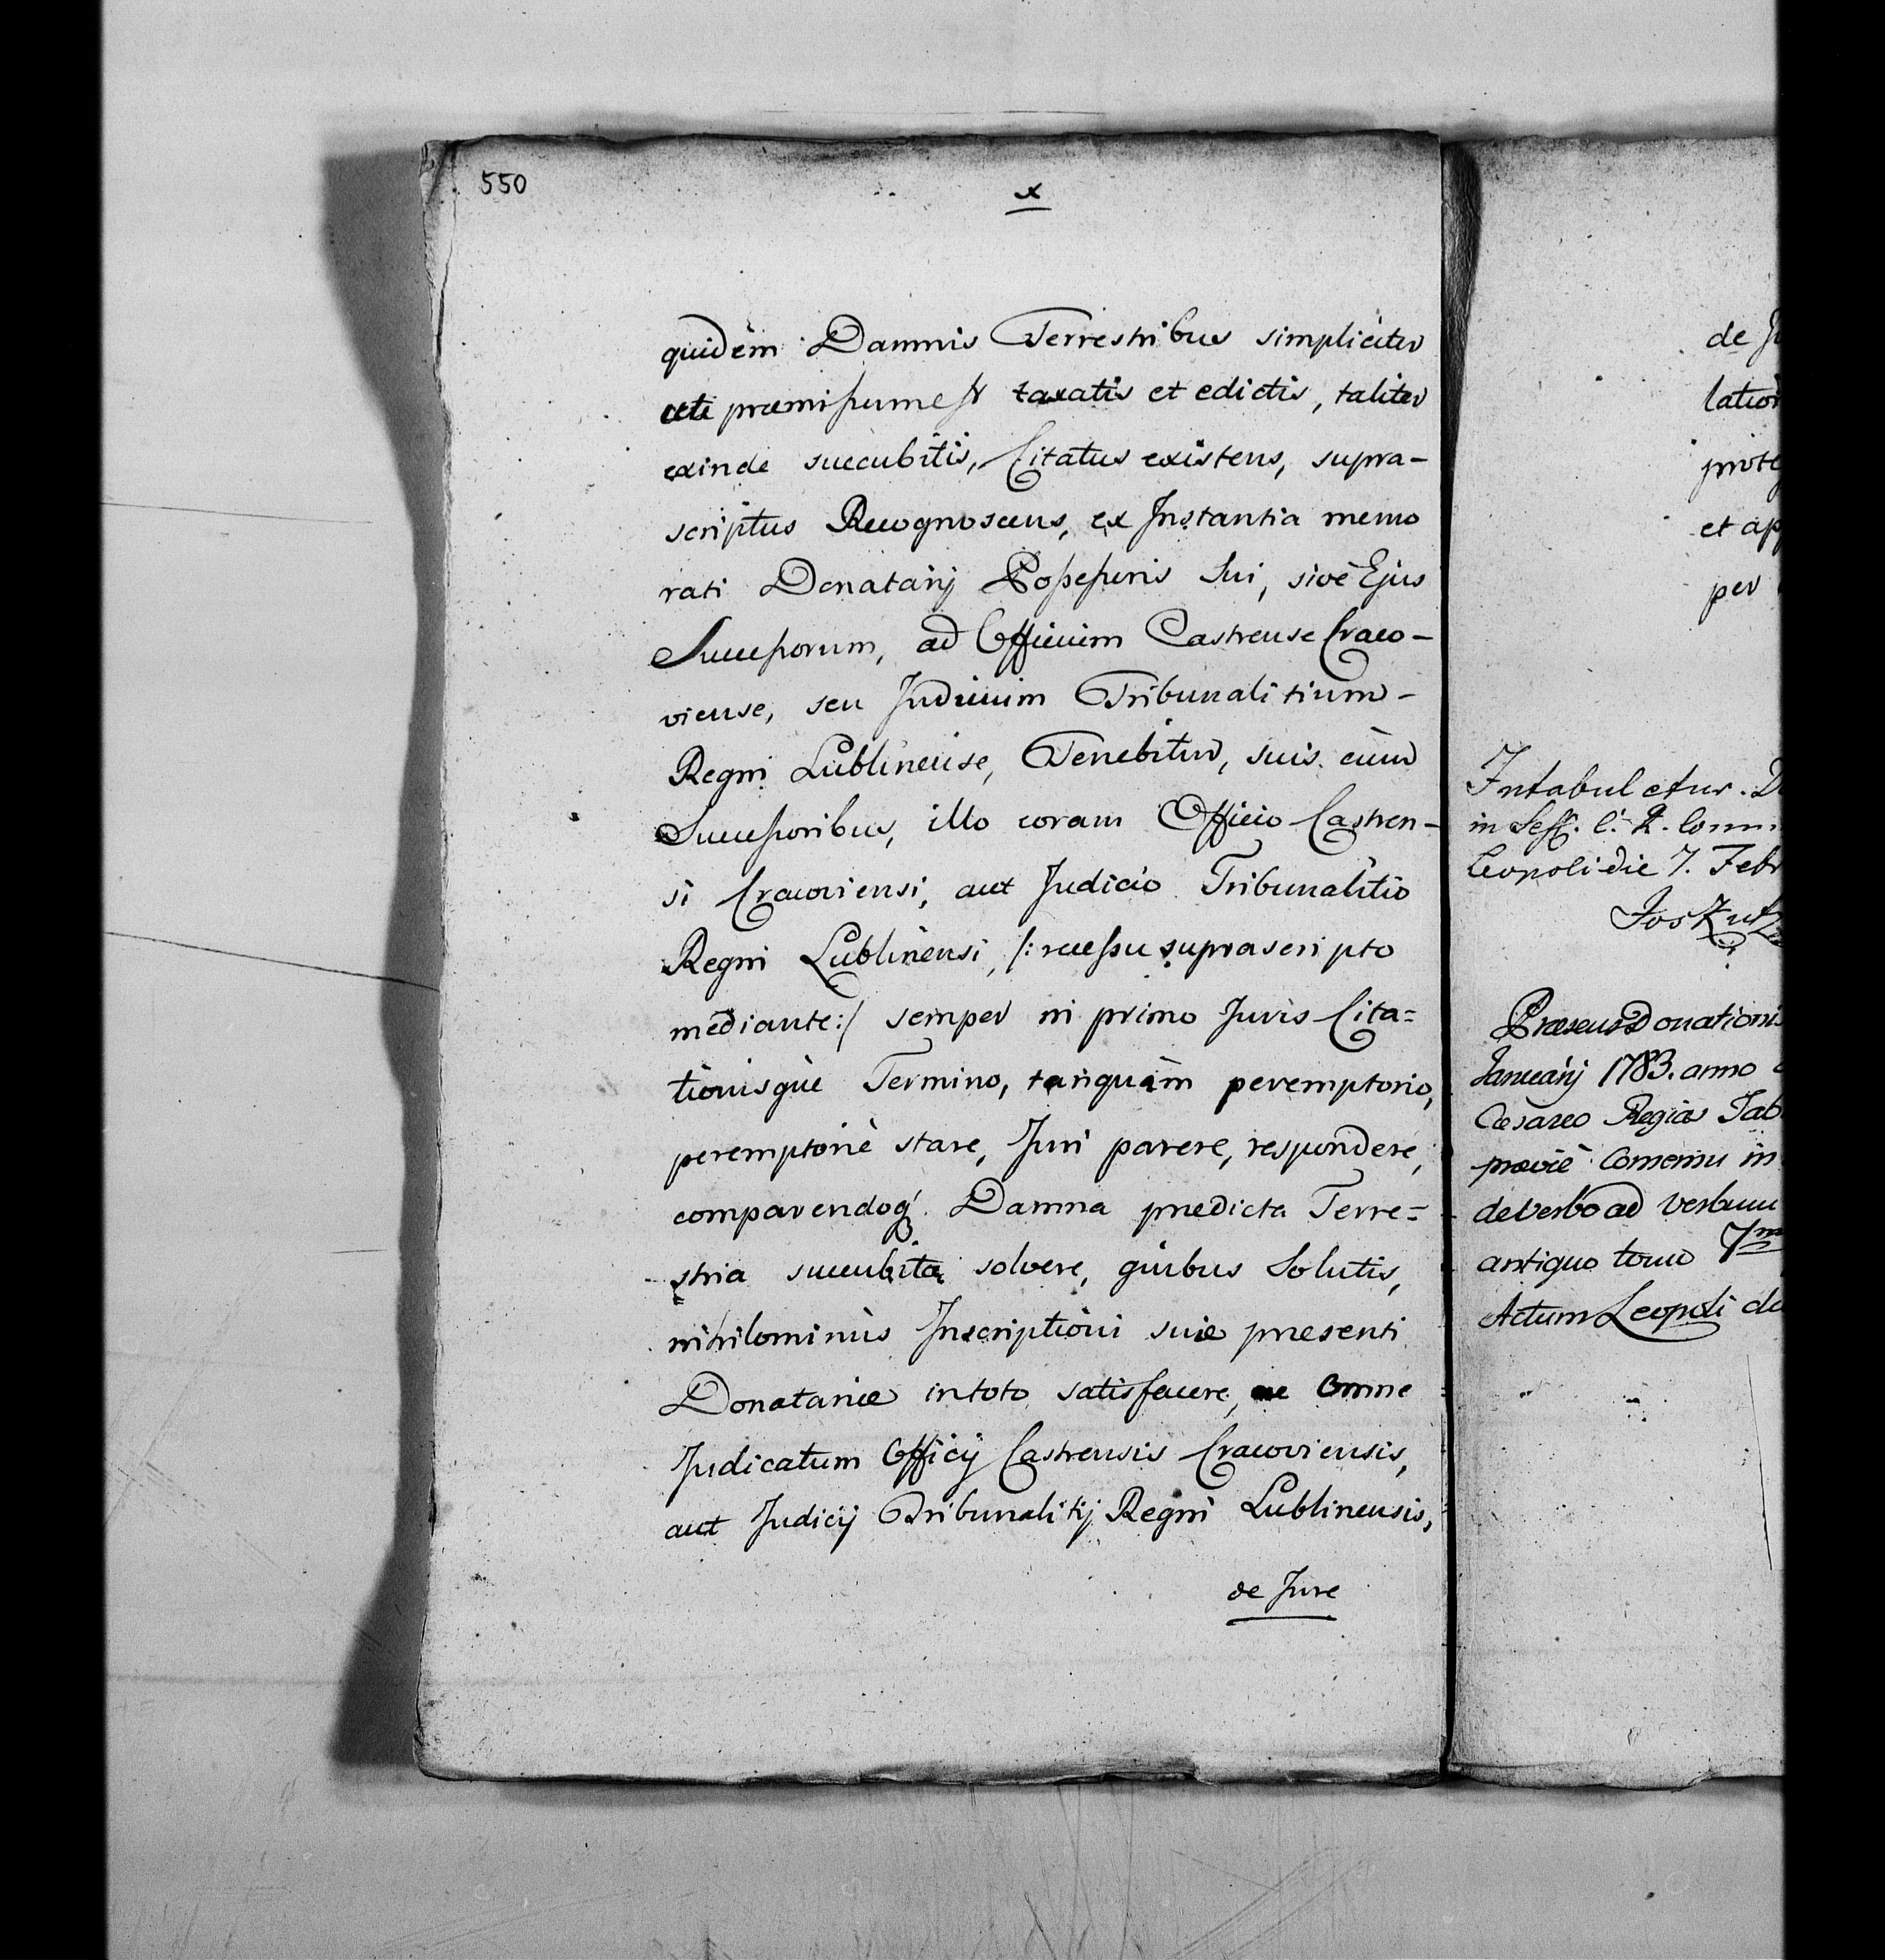 550
x
quidem Damnis Terrestribus simpliciter
uti præmissum est taxatis et edictis, taliter
exinde succubitis, Citatus existens, supra-
scriptus Recognoscens, ex Instantia memo
rati Donatarij Possessoris Sui, sivè Ejus
Successorum, ad Officium Castrense Craco-
viense, seu Judicium Tribunalitium-
Regni Lublinense, Tenebitur, suis cum
Successoribus, illo coram Officio Castren-
si Cracoviensi, aut Judicio Tribunalitio
Regni Lublinensi, /: recessu suprascripto
mediante :/ semper in primo Juris Cita=
tionisque Termino, tanquàm peremptorio,
peremptoriè stare, Juri parere, respondere,
comparendoq Damna predicta Terre=
stria succubita solvere, quibus Solutis,
nihilominùs Inscriptioni suæ presenti
Donatariæ in toto satisfacere, ac Omne
Judicatum Officij Castrensis Cracoviensis,
aut Judicij Tribunalitij Regni Lublinensis,
de Jure
de Ju
lation
prote
et app
per
Intabuletur. D
in Sess. C. R. Comm
Leopoli die 7. Febr
Jos
Præsens Donationis
Januarij 1783. anno
Cæsareo Regia Tab
prævie in
de verbo ad verbum
antiquo tomo 7m
Actum Leopoli di